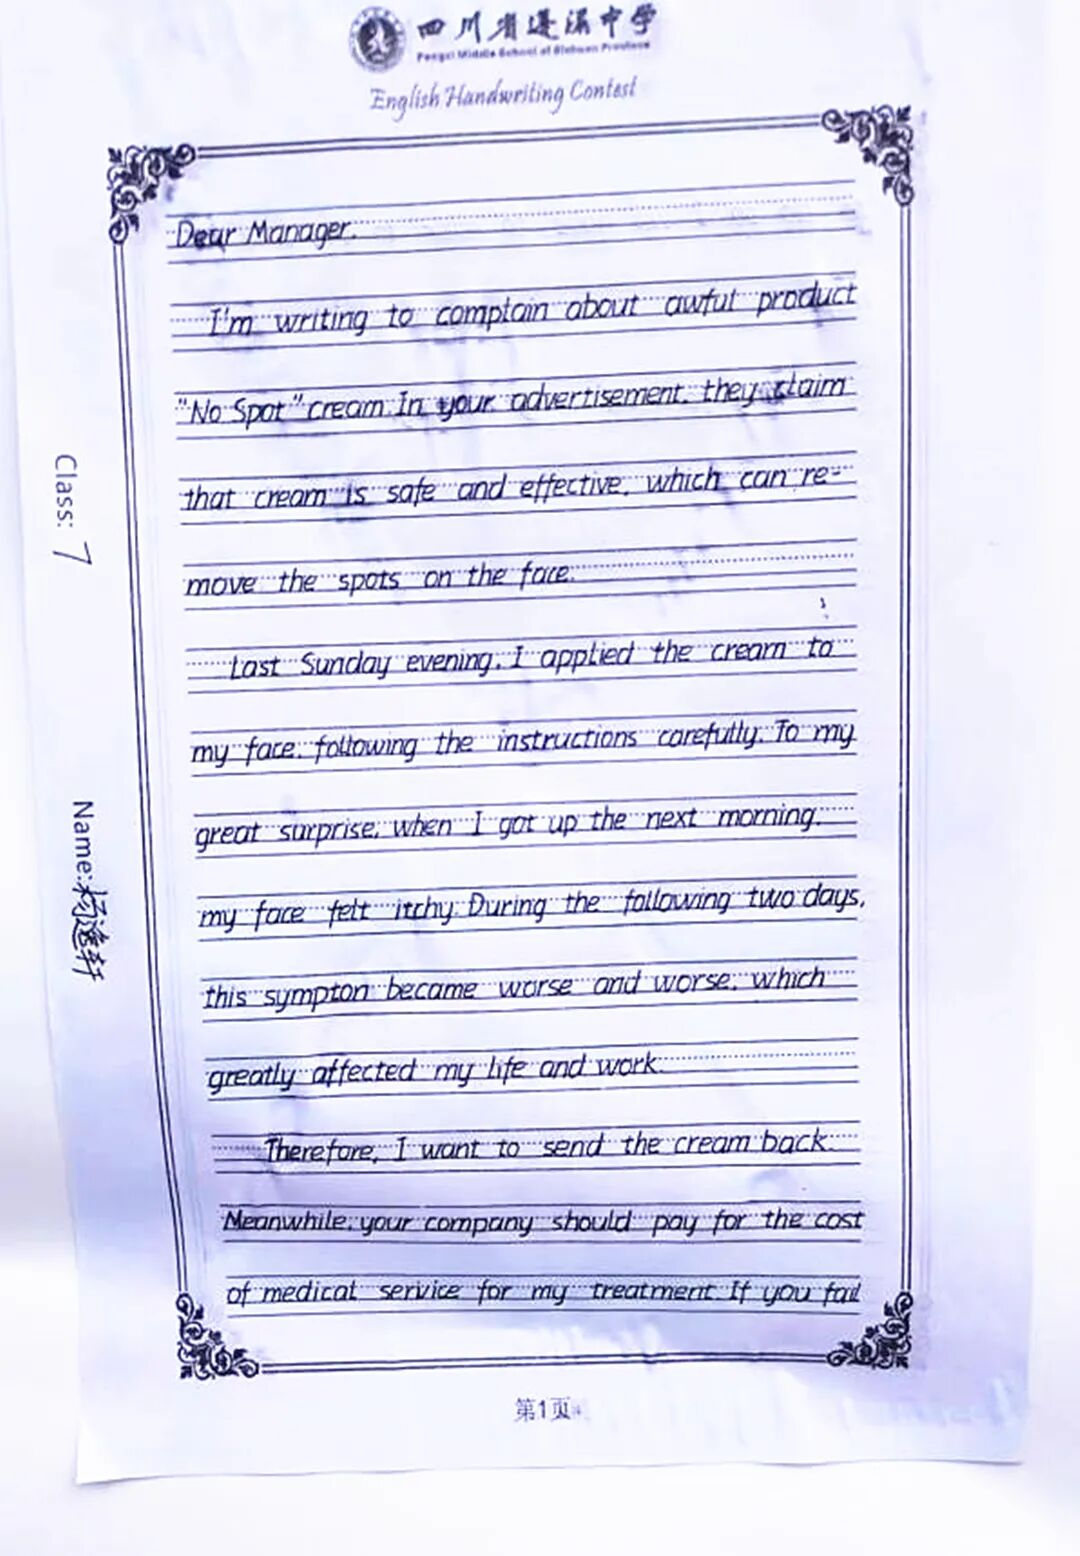 四川省蓬溪中学
Pengxi Middle School of Sichuan Province
English Handwriting Contest
Dear Manager.
I'm writing to complain about awful product
"No Spot" cream. In your advertisement, they claim
that cream is safe and effective, which can re-
move the spots on the face.
Last Sunday evening, I applied the cream to
my face, following the instructions carefully. To my
great surprise, when I got up the next morning.
my face felt itchy. During the following two days,
this sympton became worse and worse, which
greatly affected my life and work.
Therefore, I want to send the cream back.
Meanwhile, your company should pay for the cost
of medical service for my treatment. If you fail
第1页
Class: 7
Name: 杨逸轩